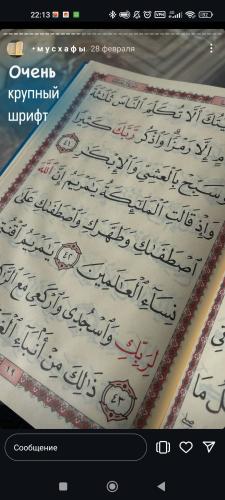 22:13
52
•мусхафы 28 февраля
Очень
крупный
шрифт
أَلَّا تُكَلِّمَ ٱلنَّاسَ ثَلَٰثَةَ
إِلَّا رَمْزًا وَٱذْكُر رَّبَّكَ كَثِيرًا
وَسَبِّحْ بِٱلْعَشِىِّ وَٱلْإِبْكَٰرِ ٤١
وَإِذْ قَالَتِ ٱلْمَلَٰٓئِكَةُ يَٰمَرْيَمُ إِنَّ ٱللَّهَ
ٱصْطَفَىٰكِ وَطَهَّرَكِ وَٱصْطَفَىٰكِ عَلَىٰ
نِسَآءِ ٱلْعَٰلَمِينَ ٤٢ يَٰمَرْيَمُ
لِرَبِّكِ وَٱسْجُدِى وَٱرْكَعِى مَعَ
٤٣ ذَٰلِكَ مِنْ أَنۢبَآءِ
Сообщение